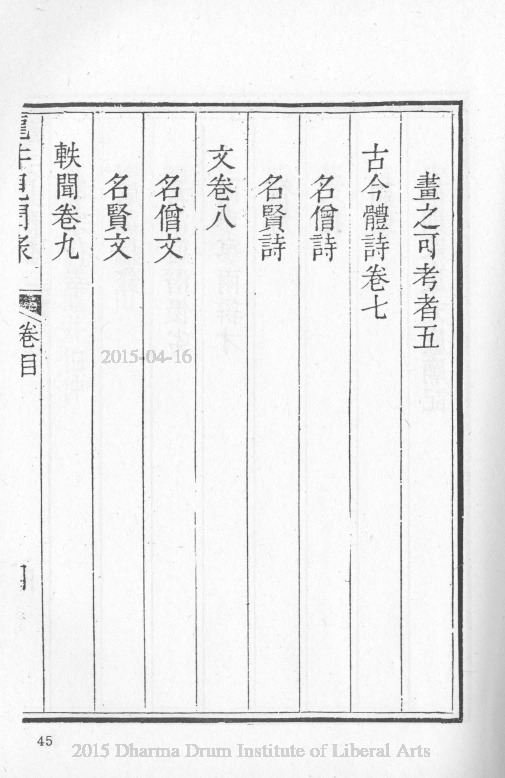 畫之可考者五
古今體詩卷七
名僧詩
名賢詩
文卷八
名僧文
名賢文
軼聞卷九
龍井見聞录
卷目
2015-04-16
45
2015 Dharma Drum Institute of Liberal Arts